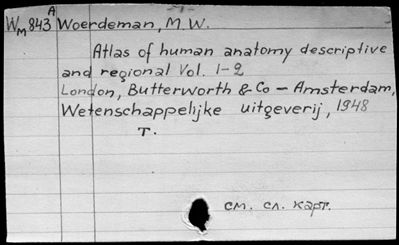 W M 843 A Woerdeman, M.W.
Atlas of human anatomy descriptive
and regional Vol. 1-2
London, Butterworth & Co – Amsterdam,
Wetenschappelijke uitgeverij, 1948
T.
см. сл. карт.